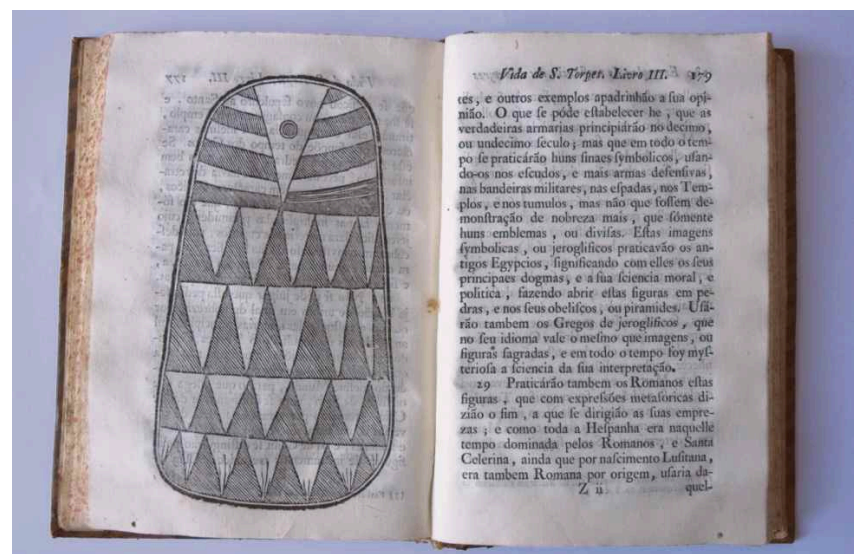 Vida de S. Torpes. Livro III. 179
tes, e outros exemplos apadrinhão a ſua opi-
nião. O que ſe póde eſtabelecer he, que as
verdadeiras armarias principiárão no decimo,
ou undecimo ſeculo; mas que em todo o tem-
po ſe praticárão huns ſinaes ſymbolicos, uſan-
do-os nos eſcudos, e mais armas defenſivas,
nas bandeiras militares, nas eſpadas, nos Tem-
plos, e nos tumulos, mas não que foſſem de-
monſtração de nobreza mais, que ſómente
huns emblemas, ou diviſas. Eſtas imagens
ſymbolicas, ou jeroglificos praticavão os an-
tigos Egypcios, ſignificando com elles os ſeus
principaes dogmas, e a ſua ſciencia moral, e
politica, fazendo abrir eſtas figuras em pe-
dras, e nos ſeus obeliſcos, ou piramides. Uſá-
rão tambem os Gregos de jeroglificos, que
no ſeu idioma vale o meſmo que imagens, ou
figuras ſagradas, e em todo o tempo foy myſ-
terioſa a ſciencia da ſua interpretação.
29 Praticárão tambem os Romanos eſtas
figuras, que com expreſsões metaforicas di-
zião o fim, a que ſe dirigião as ſuas empre-
zas; e como toda a Heſpanha era naquelle
tempo dominada pelos Romanos, e Santa
Celerina, ainda que por naſcimento Luſitana,
era tambem Romana por origem, uſaria da-
Z ii quel-